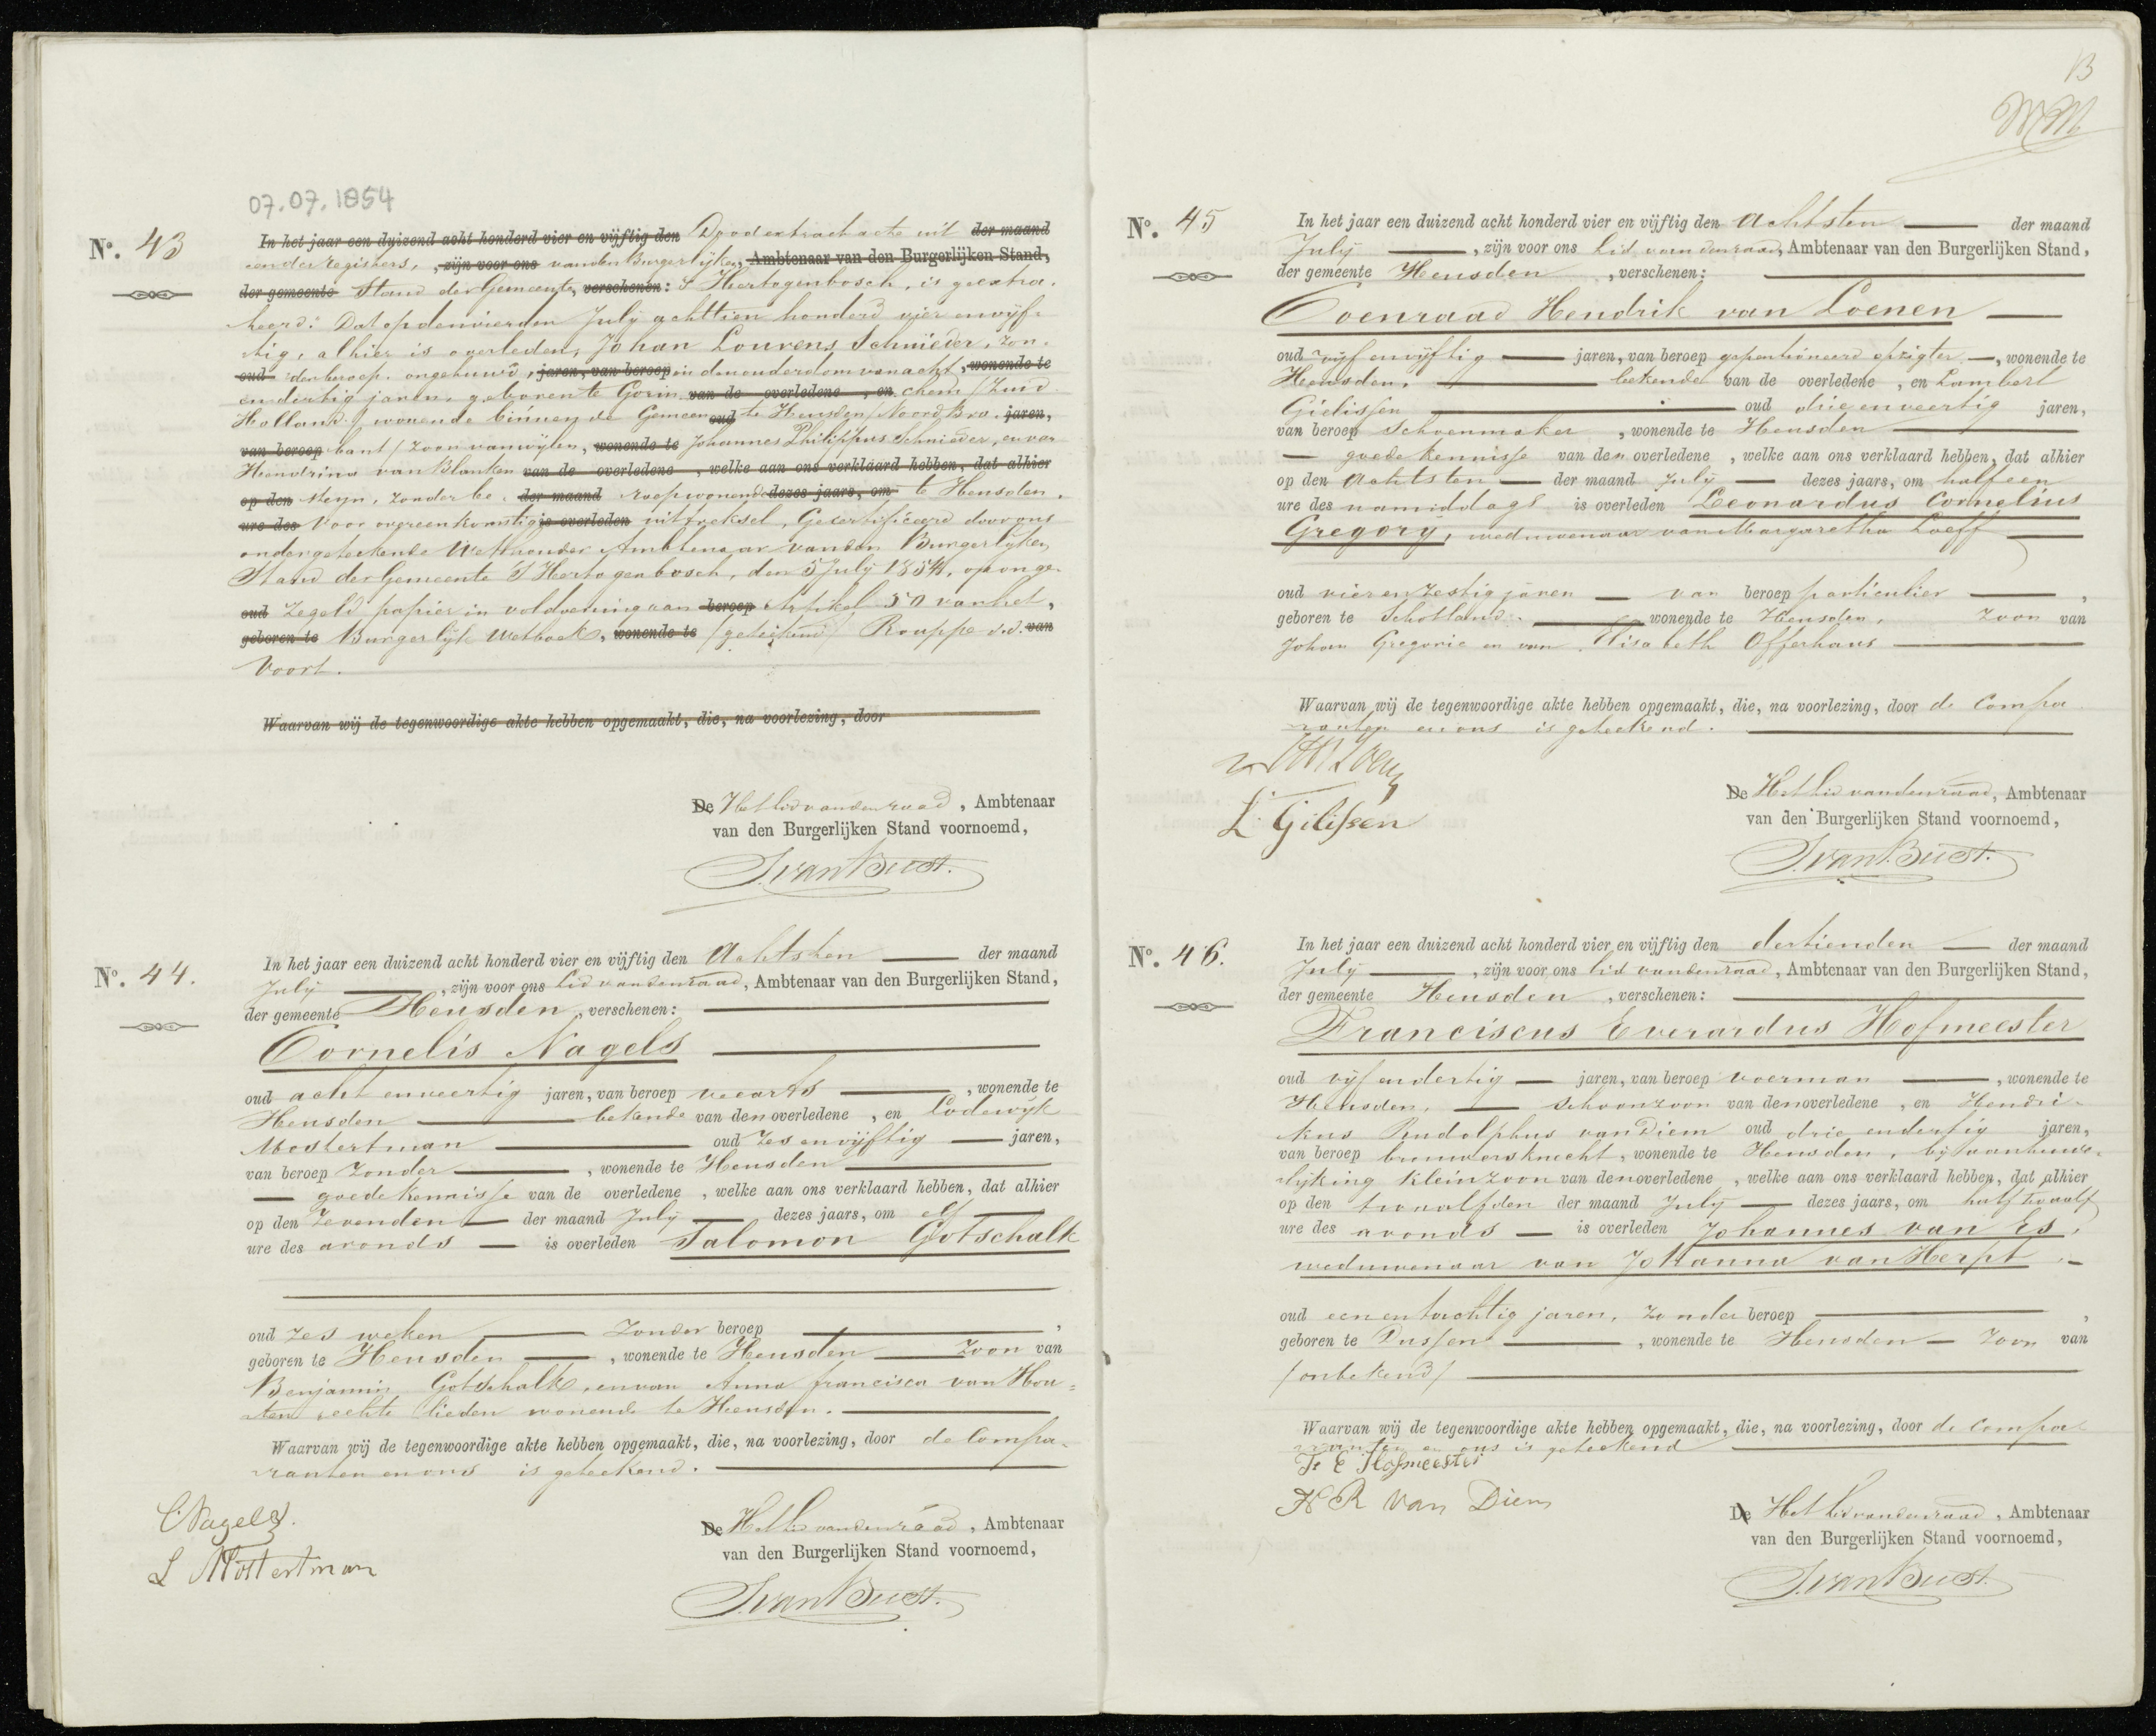 07.07.1854
No. 43
In het jaar een duizend acht honderd vier en vijftig den Dood extract acte uit der maand
een der registers, zijn voor ons van den Burgerlijken, Ambtenaar van den Burgerlijken Stand,
der gemeente Stand der Gemeente, verschenen: S Hertogenbosch, is geextra-
heerd: Dat op den vierden July achttien honderd vier en vijf-
tig, alhier is overleden, Johan Lourens Schnieder, zon-
oud der beroep, ongehuwd, jaren, van beroep in den ouderdom van acht, wonende te
en dertig jaren, geboren te Gorin van de overledene, en chem / Zuid
Holland / wonende binnen de Gemeen oud te Heusden / Noord Bra- jaren,
van beroep bant / zoon van wijlen, wonende te Johannes Philippus Schnieder, en van
Hendrina van Blanken van de overledene , welke aan ons verklaard hebben, dat alhier
op den steyn, zonder be- der maand roep wonende dezes jaars, om te Heusden.
ure des Voor overeenkomstig is overleden uittreksel, Gecertificeerd door ons
ondergeteekende Wethouder Ambtenaar van den Burgerlyken
Stand der Gemeente 'S Hertogenbosch, den 5 July 1854, op onge-
oud zegeld papier in voldoening aan beroep Artikel 50 van het,
geboren te Burgerlijk Wetboek, wonende te / geteekend / Rouppe v.d. van
Voort.
Waarvan wij de tegenwoordige akte hebben opgemaakt, die, na voorlezing, door
De Het lid van den raad, Ambtenaar
van den Burgerlijken Stand voornoemd,
J. van Buest.
No. 44.
In het jaar een duizend acht honderd vier en vijftig den Achtsten der maand
July , zijn voor ons Lid van den raad, Ambtenaar van den Burgerlijken Stand,
der gemeente Heusden, verschenen:
Cornelis Nagels
oud acht en veertig jaren, van beroep veearts , wonende te
Heusden bekende van den overledene , en Lodewijk
Mostertman oud zes en vijftig jaren,
van beroep zonder , wonende te Heusden
goede kennisse van de overledene , welke aan ons verklaard hebben, dat alhier
op den Zevenden der maand July dezes jaars, om elf
ure des avonds is overleden Salomon Gotschalk
oud zes weken zonder beroep ,
geboren te Heusden , wonende te Heusden Zoon van
Benjamin Gotschalk, en van Anna francisca van Hou=
ten, echte lieden wonende te Heusden.
Waarvan wij de tegenwoordige akte hebben opgemaakt, die, na voorlezing, door de Compa-
ranten en ons is geteekend.
C Nagels.
L Mostertman
De Het lid van den raad, Ambtenaar
van den Burgerlijken Stand voornoemd,
J. van Buest.
13
No. 45
In het jaar een duizend acht honderd vier en vijftig den Achtsten der maand
July , zijn voor ons Lid van den raad, Ambtenaar van den Burgerlijken Stand,
der gemeente Heusden , verschenen:
Coenraad Hendrik van Loenen
oud vijf en vijftig jaren, van beroep gepentioneerd opzigter , wonende te
Heusden, bekende van de overledene , en Lambert
Gielissen oud drie en veertig jaren,
van beroep Schoenmaker , wonende te Heusden
goede kennisse van den overledene , welke aan ons verklaard hebben, dat alhier
op den Achtsten der maand July dezes jaars, om half een
ure des namiddags is overleden Leonardus Cornelius
Gregory, weduwenaar van Margaretha Loeff
oud vier en zestig jaren van beroep particulier ,
geboren te Schotland. wonende te Heusden, Zoon van
Johan Gregorie en van Elisabeth Offerhaus
Waarvan wij de tegenwoordige akte hebben opgemaakt, die, na voorlezing, door de Compa
ranten en ons is geteekend.
L. Gilissen
De Het lid van den raad, Ambtenaar
van den Burgerlijken Stand voornoemd,
J. van Buest.
No. 46.
In het jaar een duizend acht honderd vier en vijftig den dertienden der maand
July , zijn voor ons lid van den raad, Ambtenaar van den Burgerlijken Stand,
der gemeente Heusden , verschenen:
Franciscus Everardus Hofmeester
oud vijf en dertig jaren, van beroep voerman , wonende te
Heusden, schoonzoon van den overledene , en Hendri-
kus Rudolphus van Diem oud drie en dertig jaren,
van beroep brouwersknecht, wonende te Heusden, bij aanhuwe-
lijking kleinzoon van den overledene , welke aan ons verklaard hebben, dat alhier
op den twaalfden der maand July dezes jaars, om half twaalf
ure des avonds is overleden Johannes van Es,
weduwenaar van Johanna van Herpt
oud een en tachtig jaren, zonder beroep ,
geboren te Dussen , wonende te Heusden Zoon van
/ onbekend /
Waarvan wij de tegenwoordige akte hebben opgemaakt, die, na voorlezing, door de Compa-
ranten en ons is geteekend
F. E Hofmeester
H R van Diem
De Het lid van den raad, Ambtenaar
van den Burgerlijken Stand voornoemd,
J. van Buest.